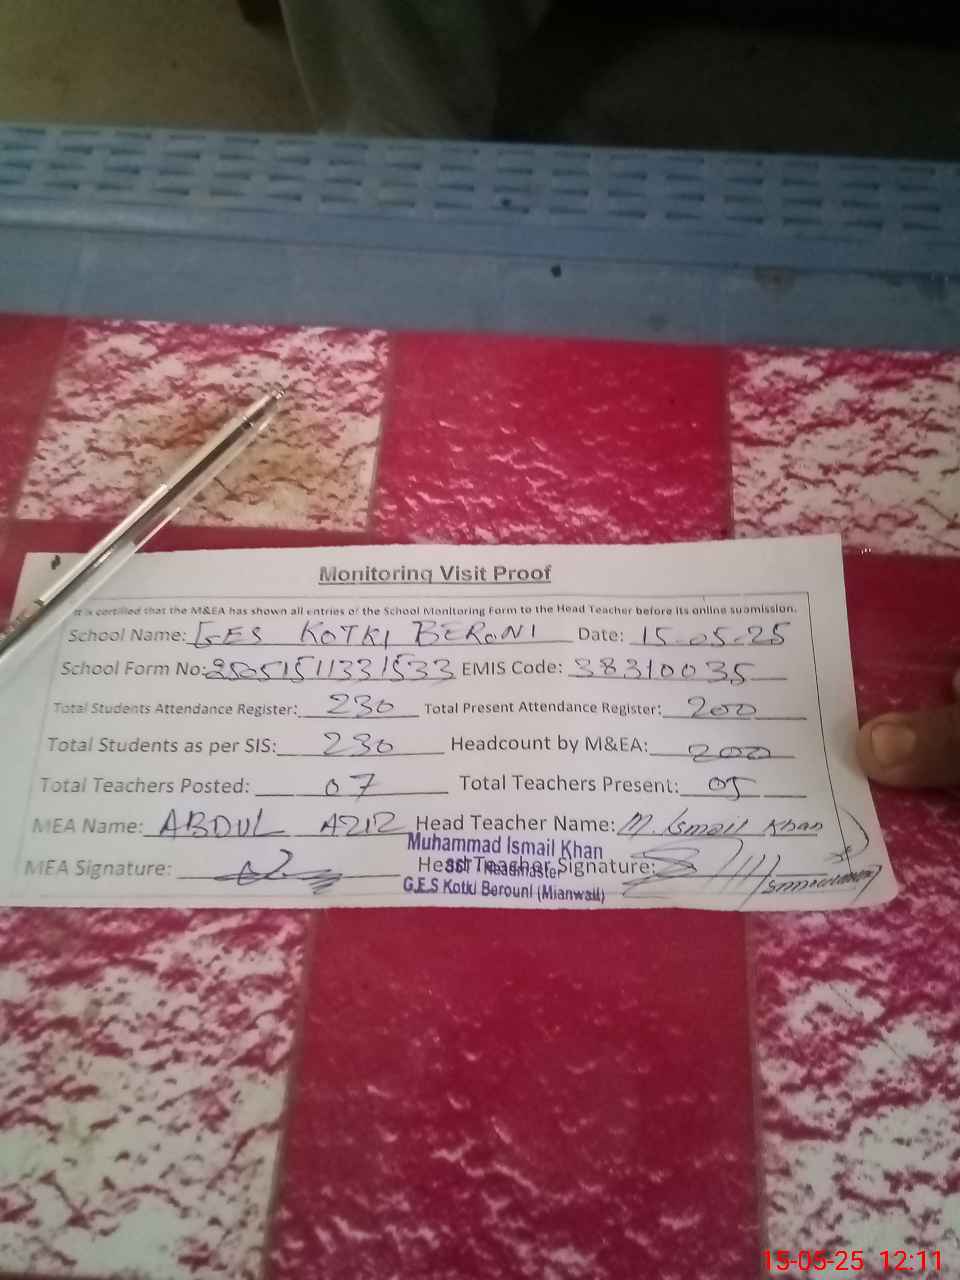 Monitoring Visit Proof
It is certified that the M&EA has shown all entries of the School Monitoring Form to the Head Teacher before its online submission.
School Name: GES KOTKI BERONI Date: 15-05-25
School Form No: 25051511331533 EMIS Code: 38310035
Total Students Attendance Register: 230 Total Present Attendance Register: 200
Total Students as per SIS: 230 Headcount by M&EA: 200
Total Teachers Posted: 07 Total Teachers Present: 05
MEA Name: ABDUL AZIZ Head Teacher Name: M. Ismail Khan
Muhammad Ismail Khan
MEA Signature: Head Teacher Signature:
SST Headmaster
G.E.S Kotki Berouni (Mianwali)
15-05-25 12:11